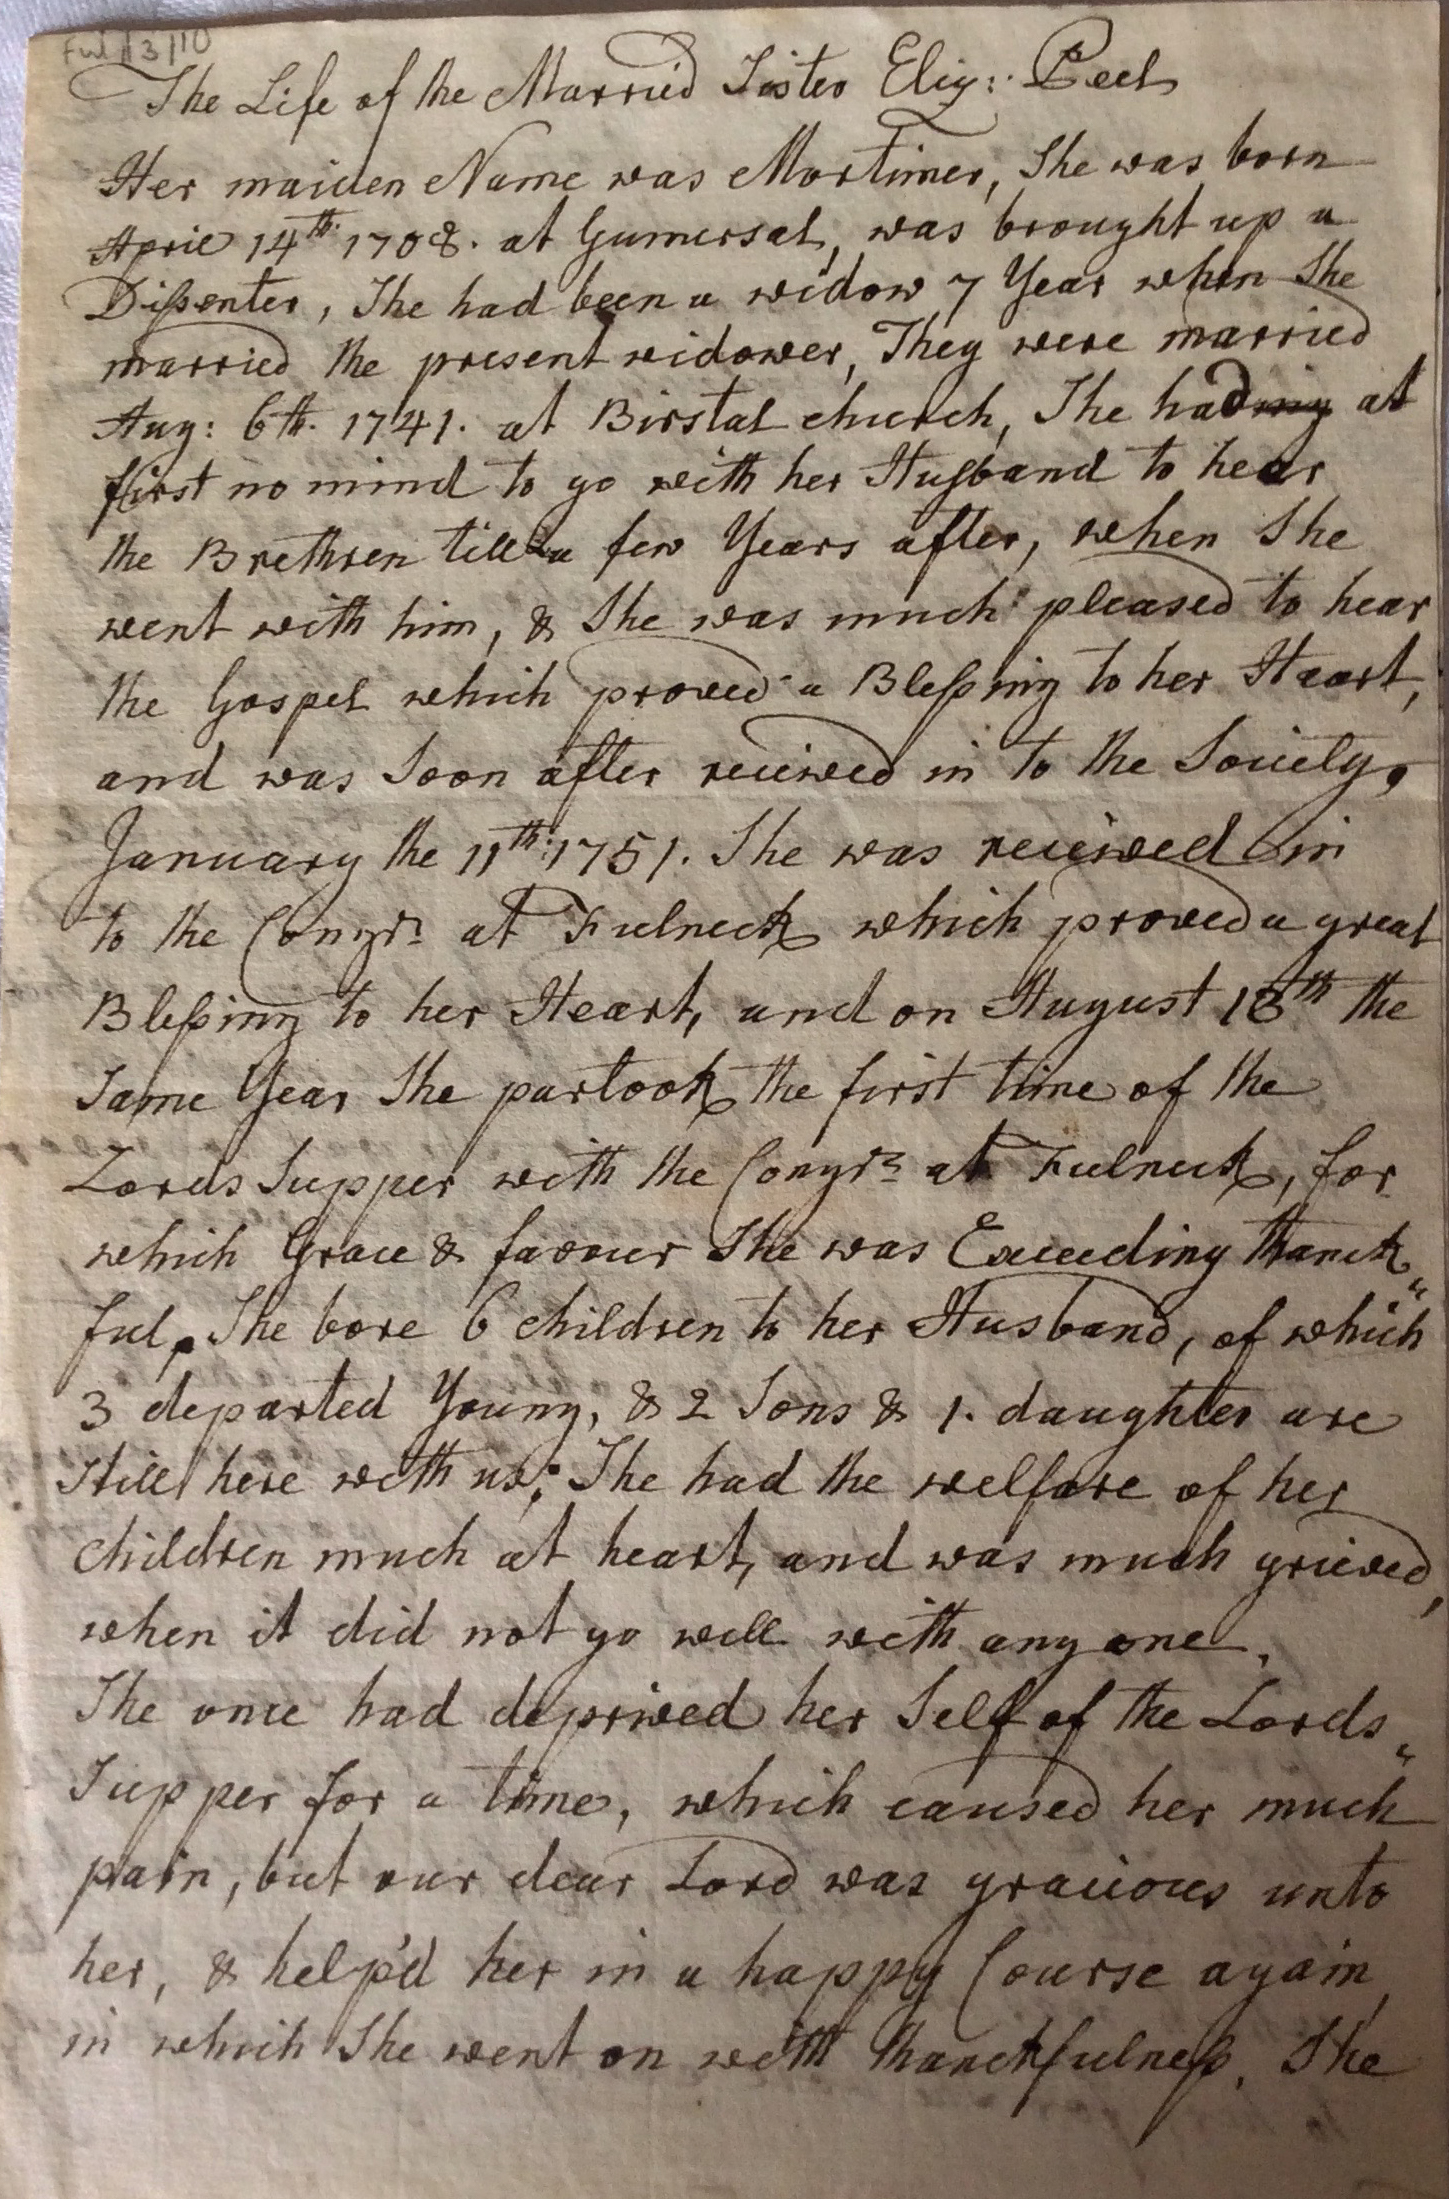 Ful/13/10
The Life of the Married Sister Eliz: Peel
Her maiden Name was Mortimer, She was born
April 14th. 1708. at Gumersal, was brought up a
Dissenter, She had been a widow 7 Year when She
married the present widower, They were married
Aug: 6th. 1741. at Birstal church, She had at
first no mind to go with her Husband to hear
the Brethren till a few Years after, when She
went with him, & She was much pleased to hear
the Gospel which proved a Blessing to her Heart,
and was Soon after reciwed in to the Society,
January the 11th: 1751. She was reciewed in
to the Congrn at Fulneck which proved a great
Blessing to her Heart, and on August 18th the
Same Year She partook the first time of the
Lords Supper with the Congrn at Fulneck, for
which Grace & favour She was Exceeding thanck"
ful, She bore 6 children to her Husband, of which
3 departed Young, & 2 Sons & 1. daughter are
Still here with us; She had the welfare of her
children much at heart, and was much grieved,
when it did not go well with any one.
She once had depriwed her Self of the Lords"
Supper for a time, which caused her much
pain, but our dear Lord was gracious unto
her, & help'd her in a happy Course again,
in which She went on with thanckfulness. She